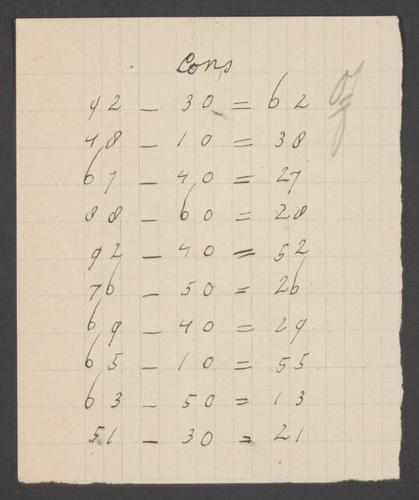 Cons
92 - 30 = 62
48 - 10 = 38
67 - 40 = 27
88 - 60 = 28
92 - 40 = 52
76 - 50 = 26
69 - 40 = 29
65 - 10 = 55
63 - 50 = 13
51 - 30 = 21